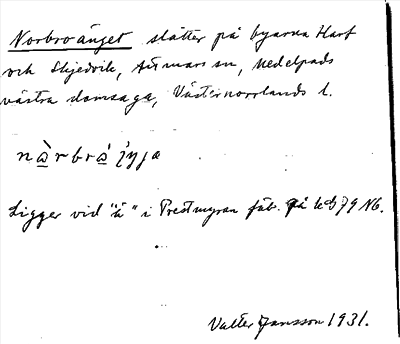 Norbroänget slåtter på byarna Harf
och Skjedvik, Attmars sn, Medelpads
västra domsaga, Västernorrlands l.
Ligger vid "å" i Prestmyran fäb. på
Valter Jansson 1931.